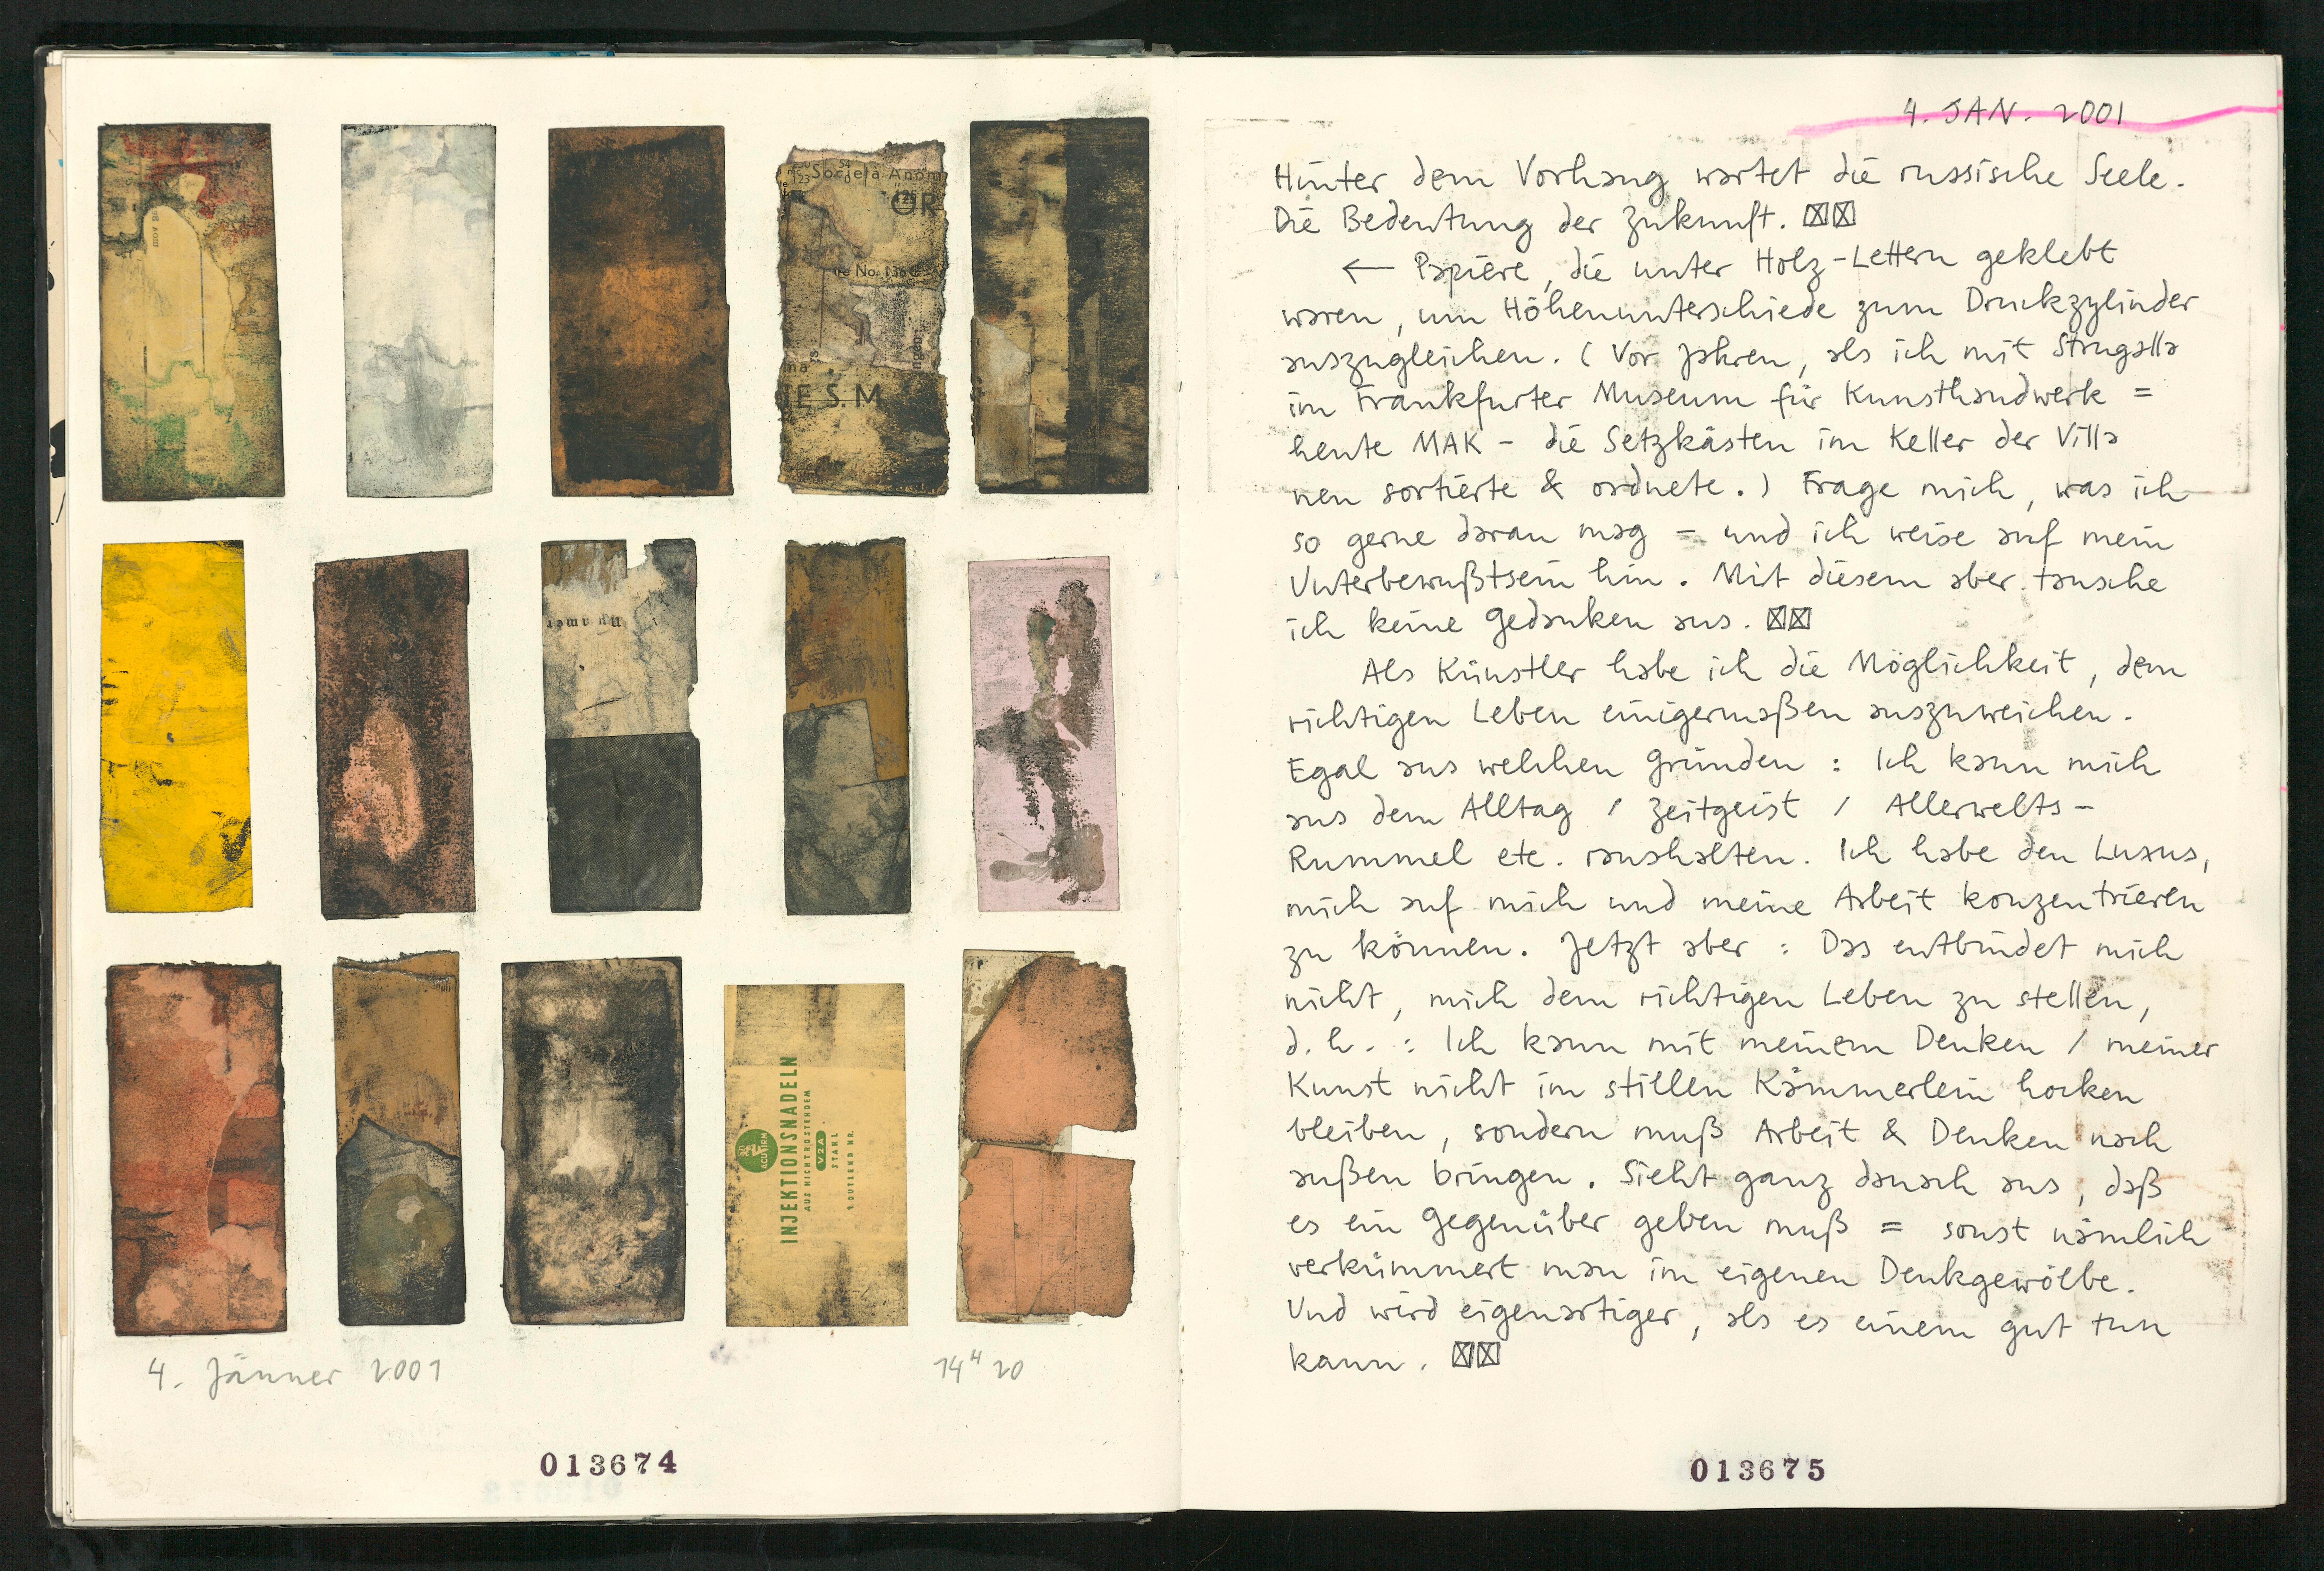 Società Anon
OR
No. 136
ngen
na
IE S. M
INJEKTIONSNADELN
AUS NICHTROSTENDEM
V2A
STAHL
ACUFIRM
4. Jänner 2001
14 H 20
013674
4. JAN. 2001
Hinter dem Vorhang wartet die russische Seele.
Die Bedeutung der Zukunft. ☒☒
← Papiere, die unter Holz-Lettern geklebt
waren, um Höhenunterschiede zum Druckzylinder
auszugleichen. (Vor Jahren, als ich mit Strugalla
im Frankfurter Museum für Kunsthandwerk =
heute MAK - die Setzkästen im Keller der Villa
neu sortierte & ordnete.) Frage mich, was ich
so gerne daran mag = und ich weise auf mein
Unterbewußtsein hin. Mit diesem aber tausche
ich keine Gedanken aus. ☒☒
Als Künstler habe ich die Möglichkeit, dem
richtigen Leben einigermaßen auszuweichen.
Egal aus welchen Gründen : Ich kann mich
aus dem Alltag / Zeitgeist / Allerwelts-
Rummel etc. raushalten. Ich habe den Luxus,
mich auf mich und meine Arbeit konzentrieren
zu können. Jetzt aber : Das entbindet mich
nicht, mich dem richtigen Leben zu stellen,
d. h. : Ich kann mit meinem Denken / meiner
Kunst nicht im stillen Kämmerlein hocken
bleiben, sondern muß Arbeit & Denken nach
außen bringen. Sieht ganz danach aus, daß
es ein Gegenüber geben muß = sonst nämlich
verkümmert man im eigenen Denkgewölbe.
Und wird eigenartiger, als es einem gut tun
kann. ☒☒
013675